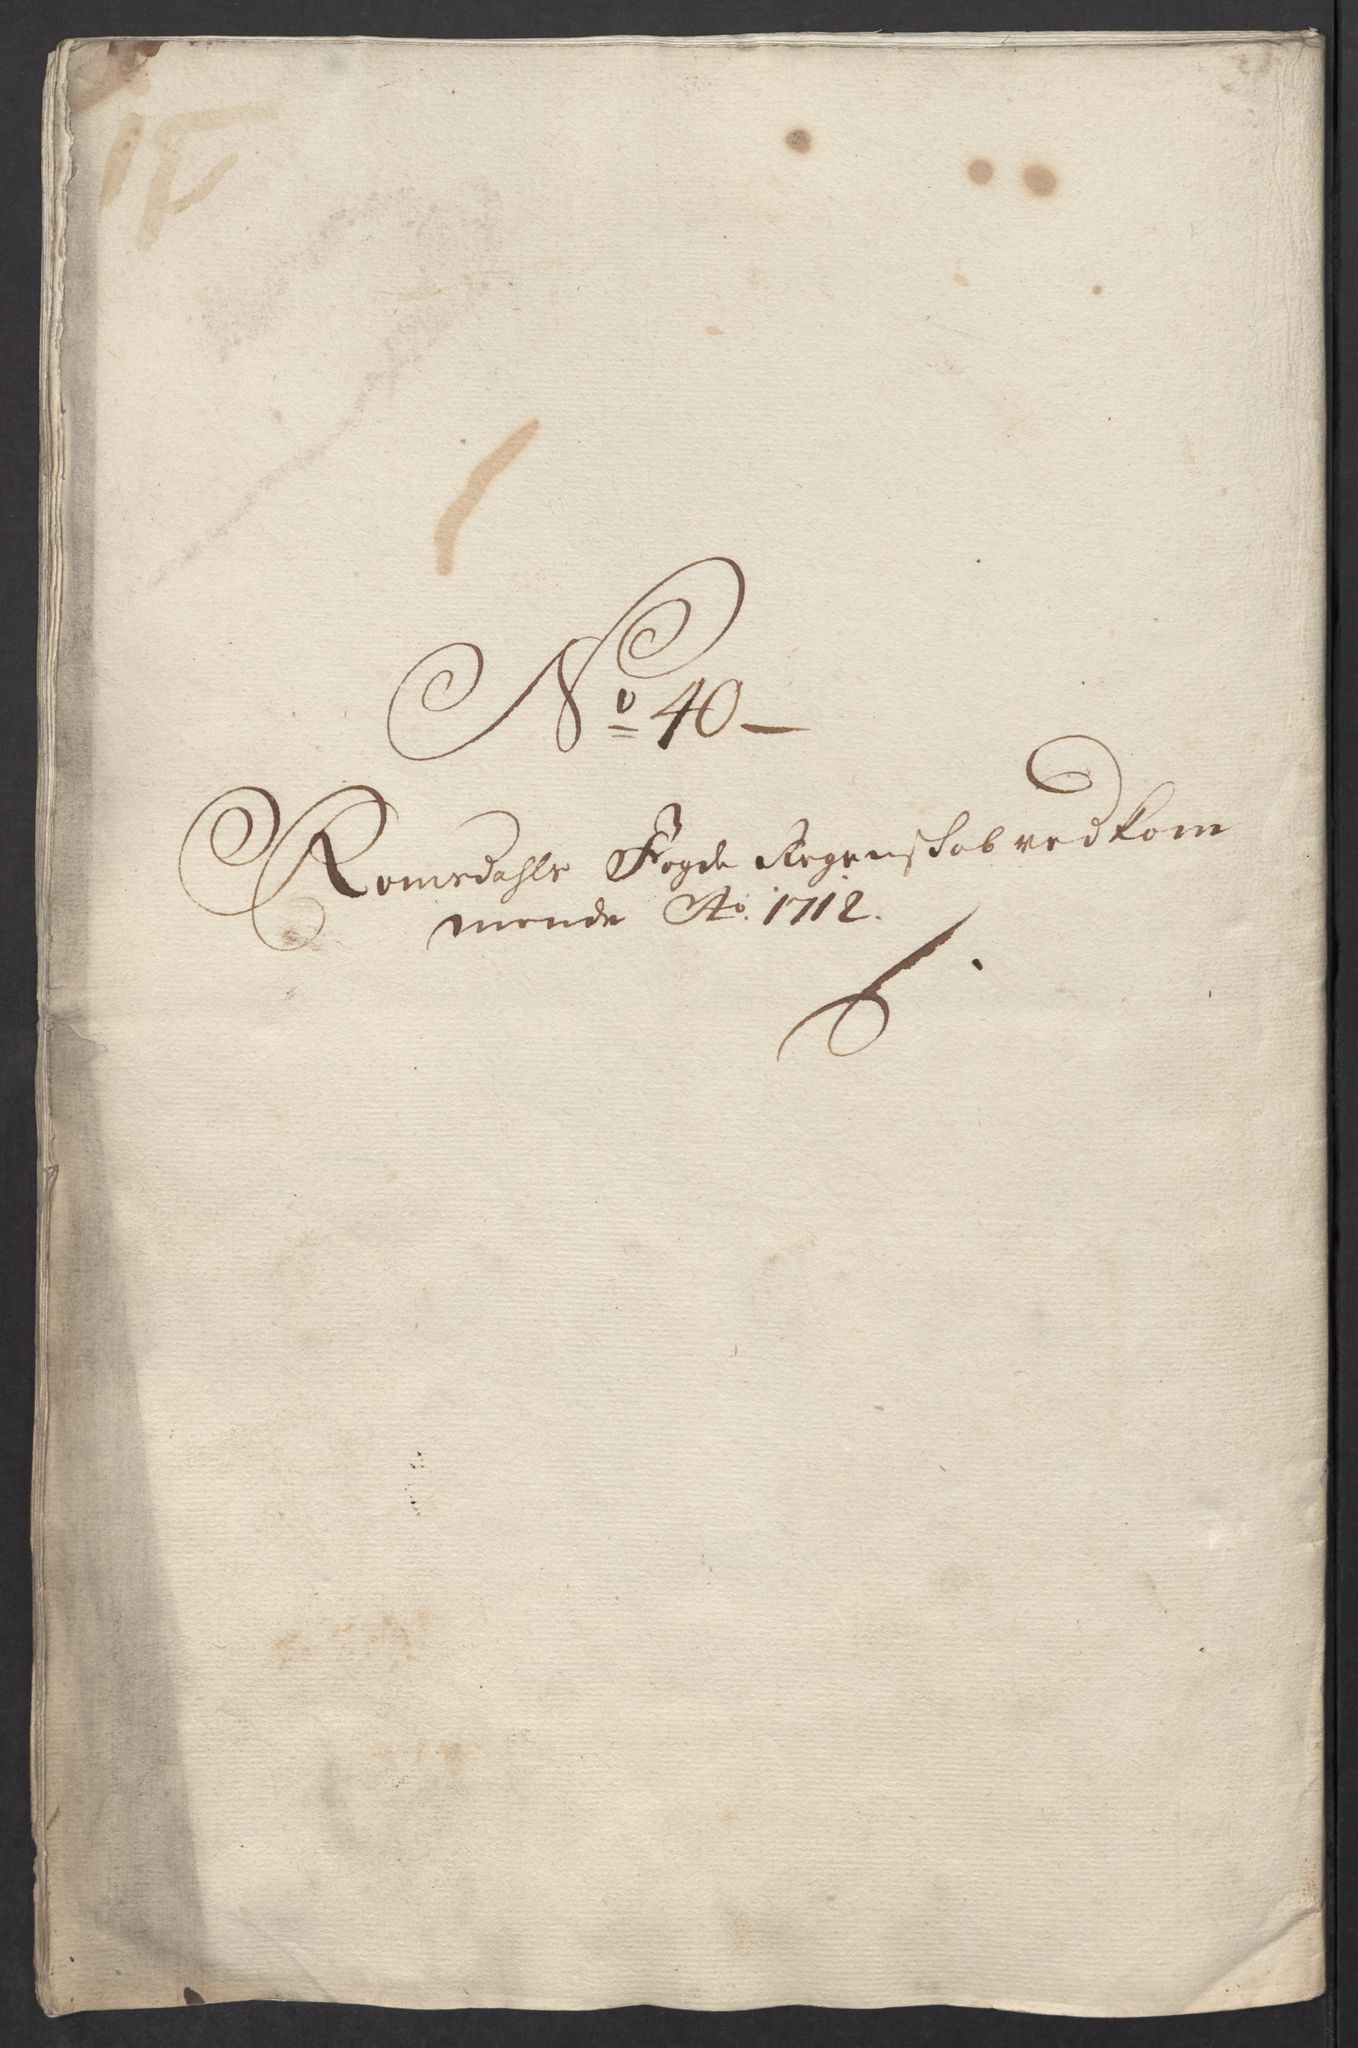 No 40
Romsdahls Fogde Regenskab vedkom
mende Ao. 1712.